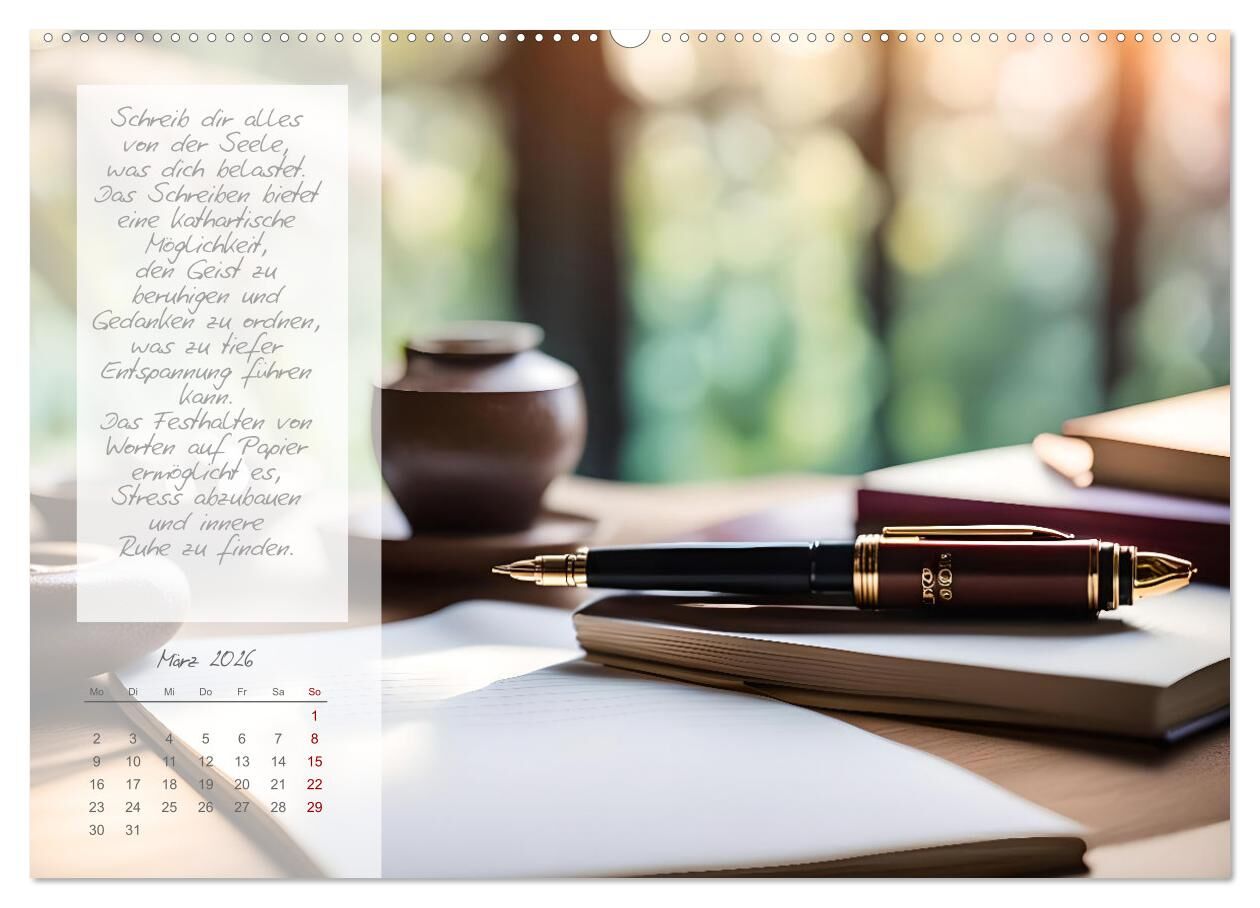 Schreib dir alles
von der Seele,
was dich belastet.
Das Schreiben bietet
eine kathartische
Möglichkeit,
den Geist zu
beruhigen und
Gedanken zu ordnen,
was zu tiefer
Entspannung führen
kann.
Das Festhalten von
Worten auf Papier
ermöglicht es,
Stress abzubauen
und innere
Ruhe zu finden.
März 2026
Mo Di Mi Do Fr Sa So
1
2 3 4 5 6 7 8
9 10 11 12 13 14 15
16 17 18 19 20 21 22
23 24 25 26 27 28 29
30 31